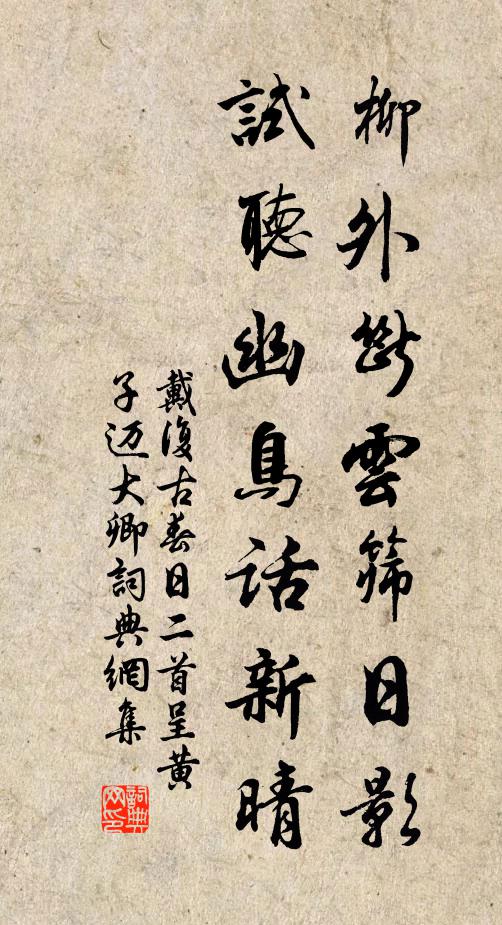 柳外斷雲篩日影
試聽幽鳥話新晴
戴復古春日二首呈黃
子迈大卿詞典網集
詞典網印